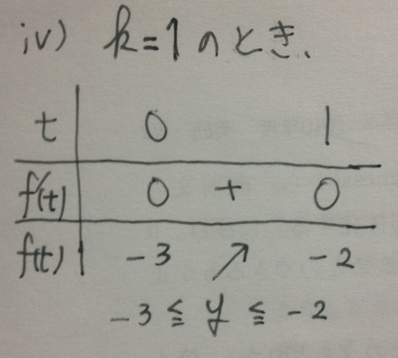 iv) k=1のとき、
t 0 1
f'(t) 0 + 0
f(t) -3 ↗ -2
-3 ≦ y ≦ -2